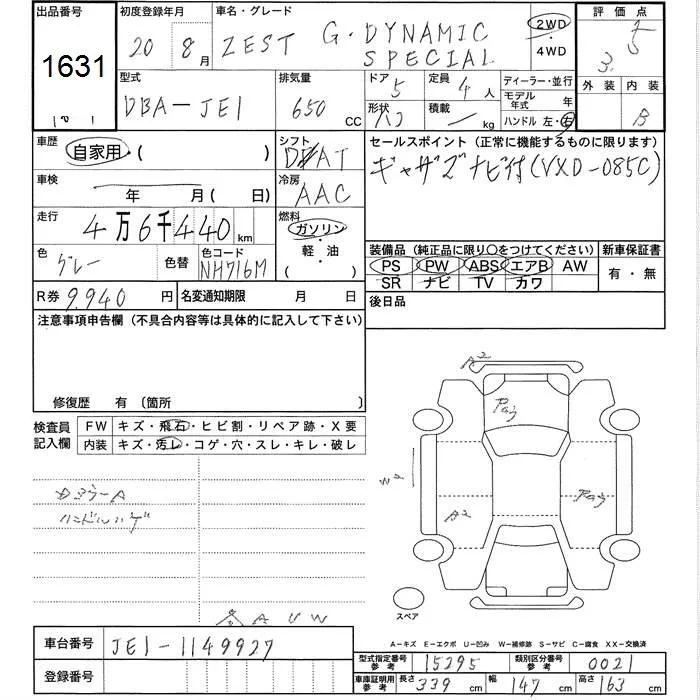 出品番号
1631
初度登録年月
20 8月
車名・グレード
ZEST G・DYNAMIC SPECIAL
2WD
・4WD
評価点
3.5
型式
DBA-JE1
排気量
650 CC
ドア
5
定員
4人
形状
積載
kg
ディーラー・並行
モデル年式 年
ハンドル 左・右
外装 内装
B
車歴
自家用・( )
シフト
AT
車検
年 月( 日)
冷房
AAC
走行
4万6千440km
燃料
ガソリン・
軽・油
( )
色
グレー
色替
色コード
NH716M
R券 9.940 円
名変通知期限 月 日
セールスポイント(正常に機能するものに限ります)
ギャザズナビ付(VXD-085C)
装備品(純正品に限り○をつけてください)
新車保証書
PS PW ABS エアB AW
SR ナビ TV カワ
有・無
後日品
注意事項申告欄(不具合内容等は具体的に記入して下さい)
修復歴 有〔箇所 〕
検査員記入欄
FW キズ・飛石・ヒビ割・リペア跡・X要
内装 キズ・汚レ・コゲ・穴・スレ・キレ・破レ
ハンドルハゲ
A2
A2
スペア
A U W
A−キズ E−エクボ U−凹み W−補修跡 S−サビ C−腐食 XX−交換済
車台番号 JE1-1149927
登録番号
型式指定番号参考 15295
類別区分番号参考 0021
車庫証明用参考 長さ 339 cm 幅 147 cm 高さ 163 cm